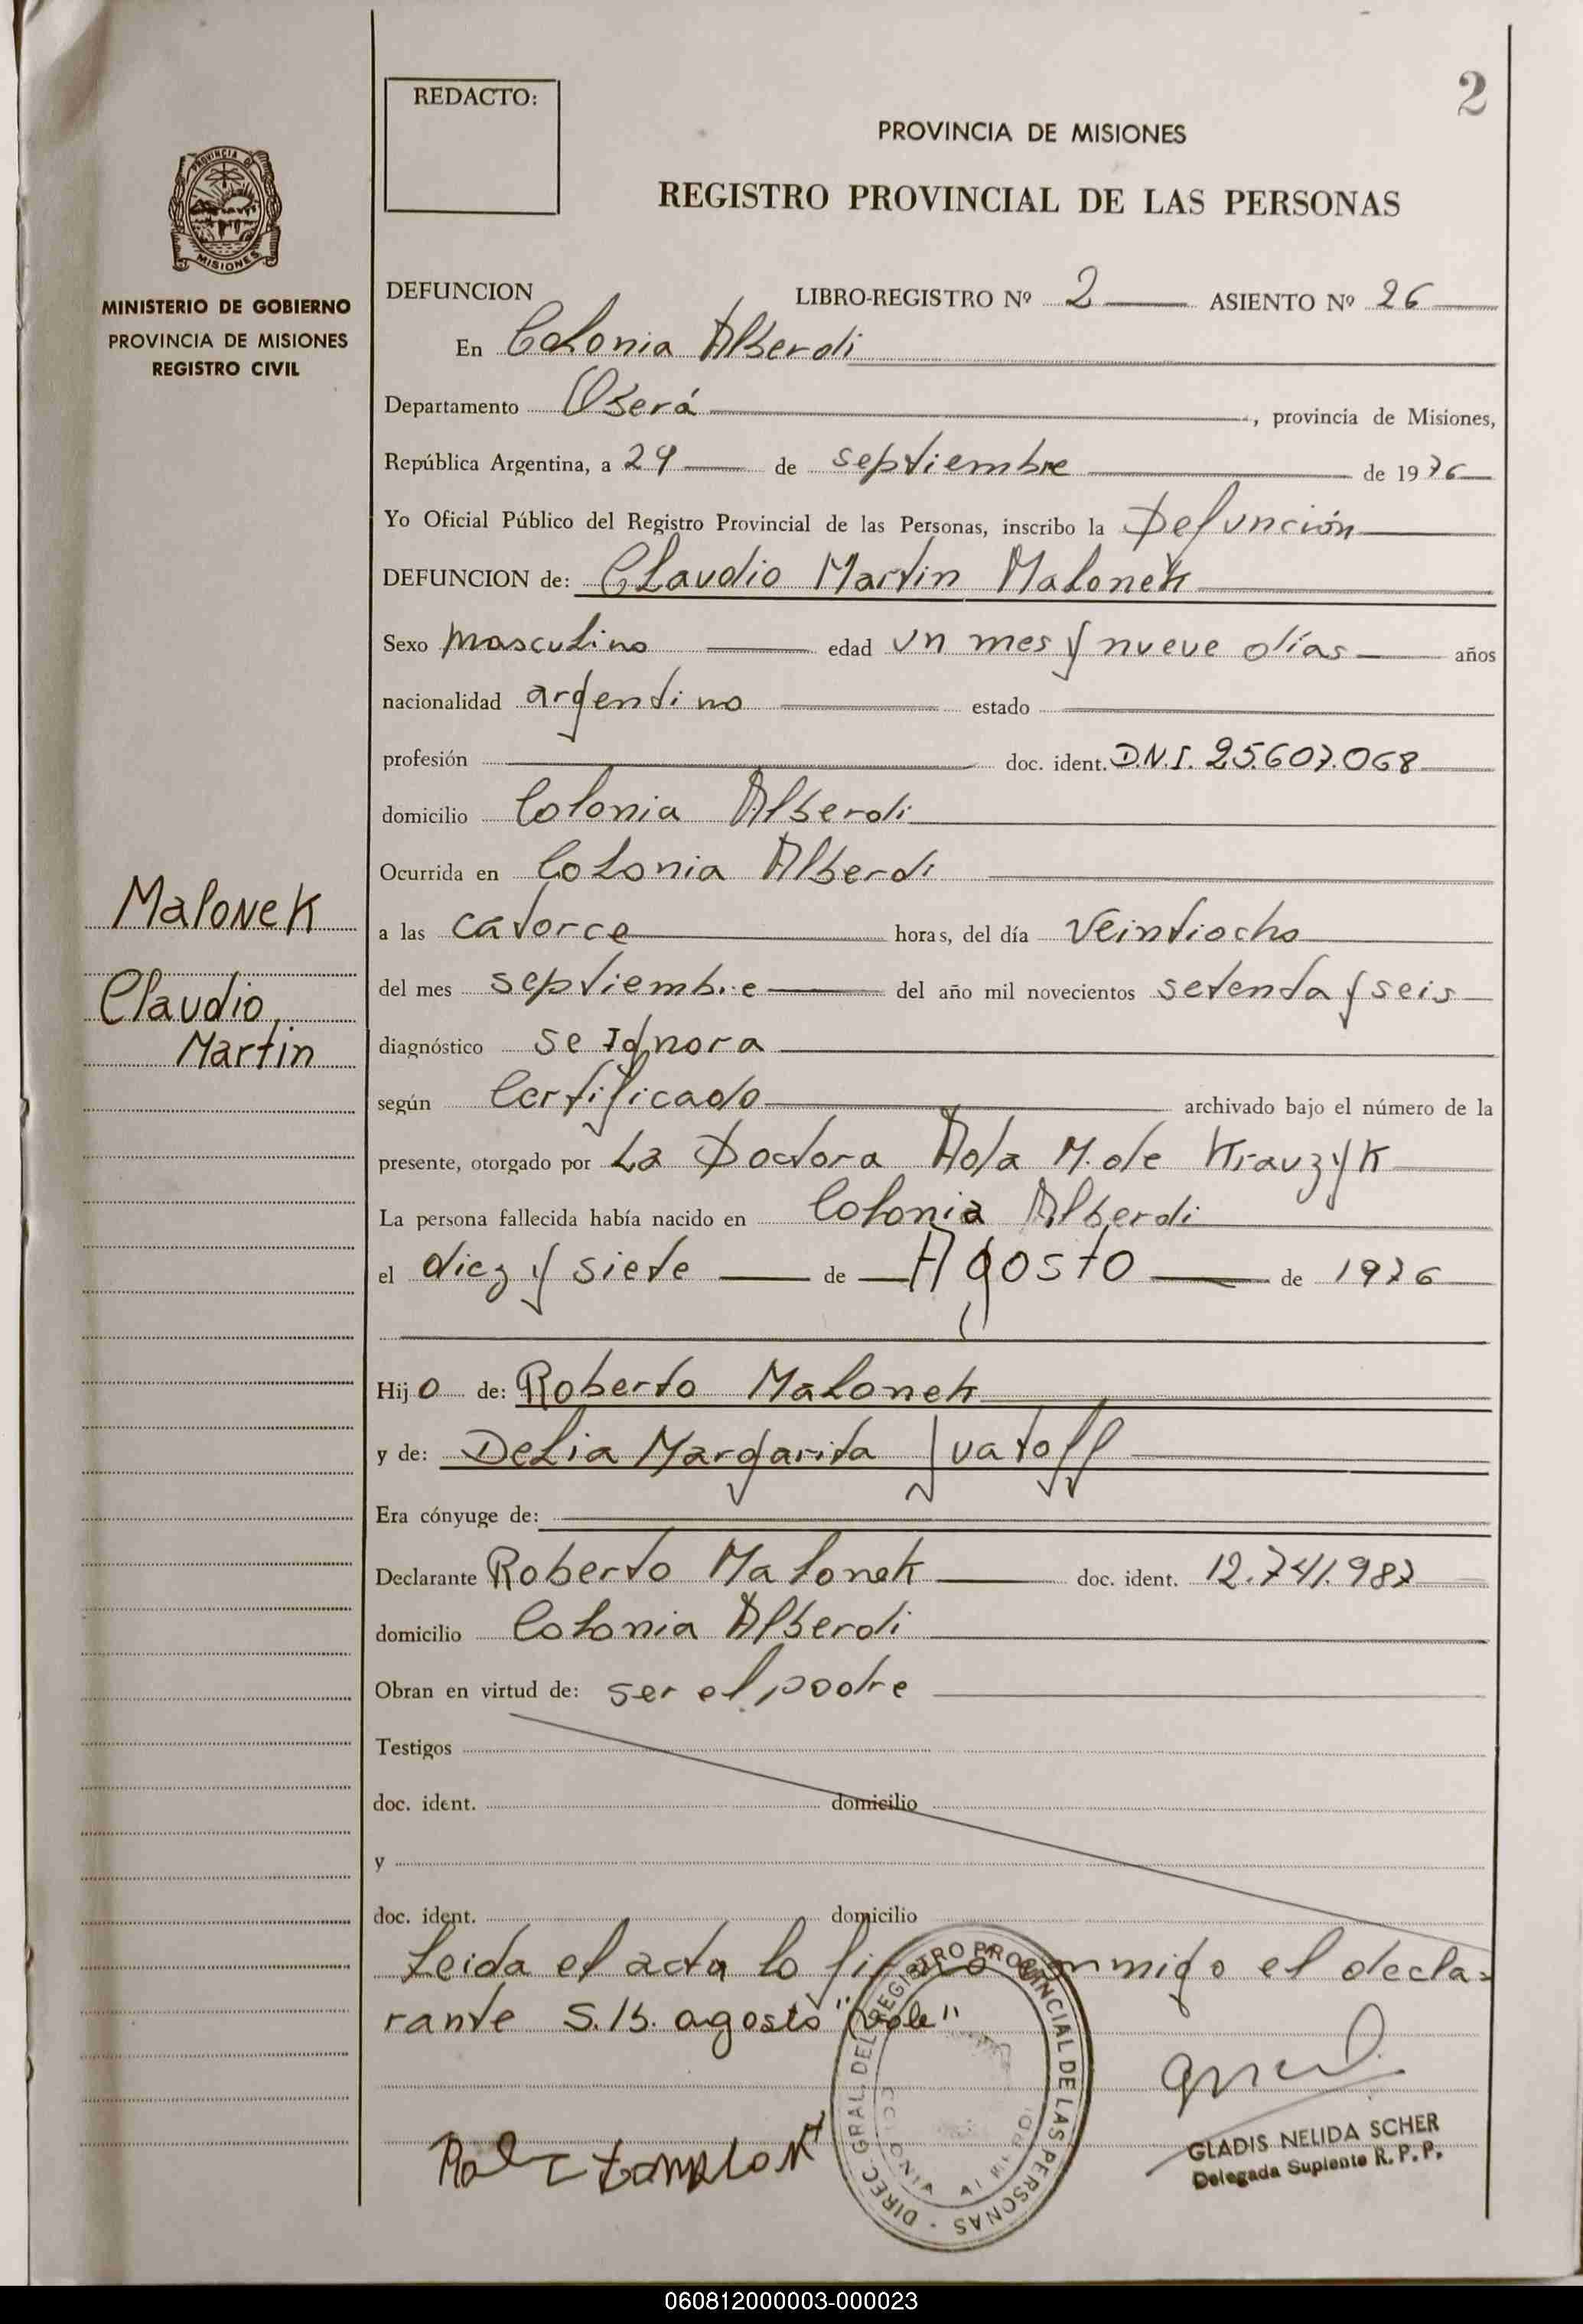 2
REDACTO:
PROVINCIA DE MISIONES
REGISTRO PROVINCIAL DE LAS PERSONAS
PROVINCIA DE
MISIONES
MINISTERIO DE GOBIERNO
PROVINCIA DE MISIONES
REGISTRO CIVIL
DEFUNCION LIBRO-REGISTRO Nº 2 ASIENTO Nº 26
En Colonia Alberdi
Departamento Oberá, provincia de Misiones,
República Argentina, a 29 de septiembre de 1976
Yo Oficial Público del Registro Provincial de las Personas, inscribo la Defunción
DEFUNCION de: Claudio Martin Malonek
Sexo masculino edad un mes y nueve días años
nacionalidad argentino estado
profesión doc. ident. D.N.I. 25.607.068
domicilio Colonia Alberdi
Ocurrida en Colonia Alberdi
Malonek
Claudio
Martin
a las catorce horas, del día veintiocho
del mes septiembre del año mil novecientos setenta y seis
diagnóstico se Ignora
según Certificado archivado bajo el número de la
presente, otorgado por La Doctora Ada M. de Krauzyk
La persona fallecida había nacido en Colonia Alberdi
el diez y siete de Agosto de 1976
Hijo de: Roberto Malonek
y de: Delia Margarita
Era cónyuge de:
Declarante Roberto Malonek doc. ident. 12.741.987
domicilio Colonia Alberdi
Obran en virtud de: ser el padre
Testigos
doc. ident. domicilio
y
doc. ident. domicilio
Leida el acta lo firmó conmigo el decla-
rante S.B. agosto "vale"
DIREC. GRAL. DEL REGISTRO PROVINCIAL DE LAS PERSONAS
COLONIA ALBERDI
GLADIS NELIDA SCHER
Delegada Suplente R. P. P.
060812000003-000023